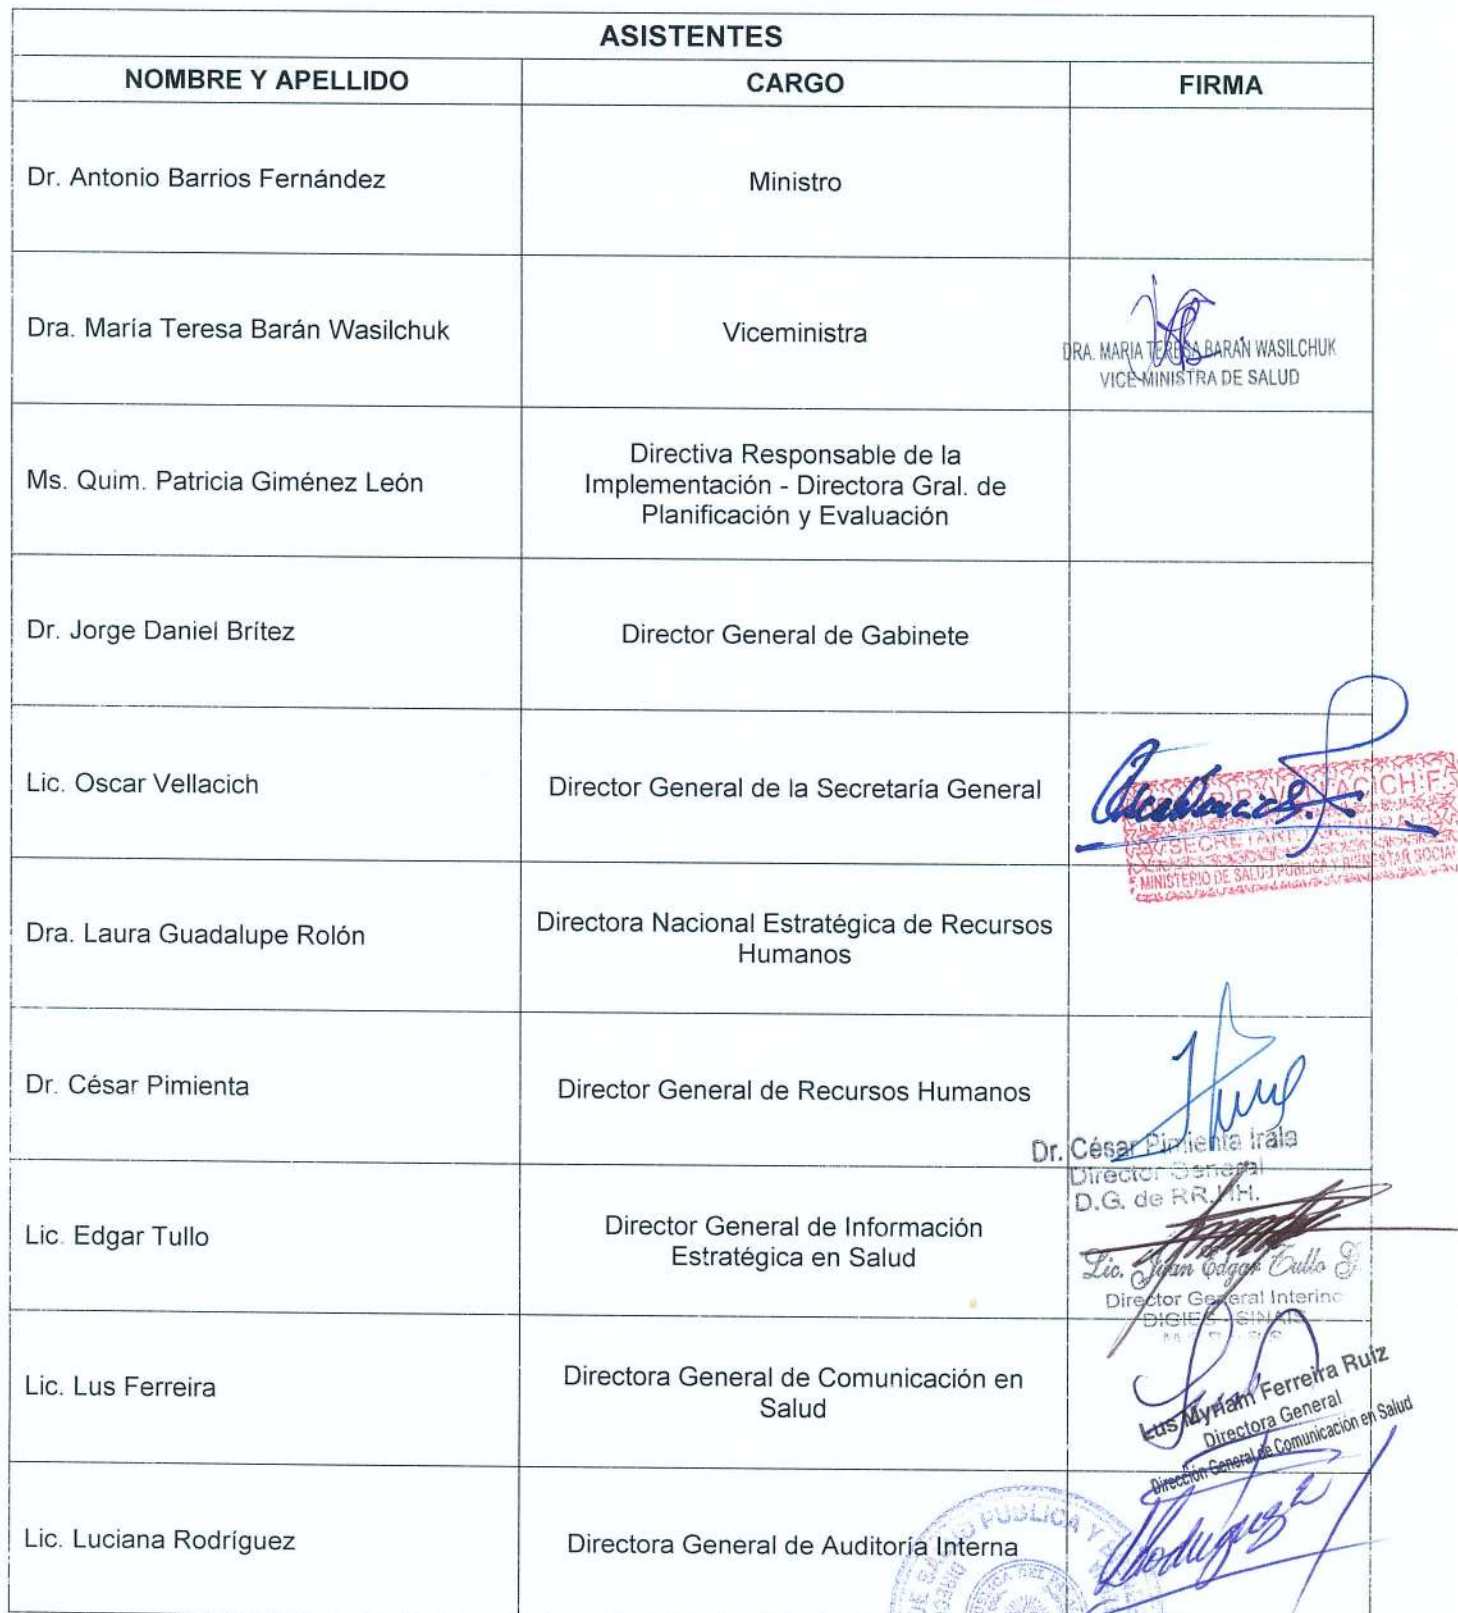 ASISTENTES
NOMBRE Y APELLIDO CARGO FIRMA
Dr. Antonio Barrios Fernández Ministro
Dra. María Teresa Barán Wasilchuk Viceministra
DRA. MARIA TERESA BARAN WASILCHUK
VICE MINISTRA DE SALUD
Ms. Quim. Patricia Giménez León
Directiva Responsable de la
Implementación - Directora Gral. de
Planificación y Evaluación
Dr. Jorge Daniel Brítez Director General de Gabinete
Lic. Oscar Vellacich Director General de la Secretaría General
MINISTERIO DE SALUD PUBLICA Y BIENESTAR SOCIAL
Dra. Laura Guadalupe Rolón
Directora Nacional Estratégica de Recursos
Humanos
Dr. César Pimienta Director General de Recursos Humanos
Dr. César Pimienta Irala
Director General
D.G. de RR.HH.
Lic. Edgar Tullo
Director General de Información
Estratégica en Salud
Lic. Juan Edgar Tullo G.
Director General Interino
DIGIES - SINAIS
Lic. Lus Ferreira
Directora General de Comunicación en
Salud
Lus Myriam Ferreira Ruiz
Directora General
Dirección General de Comunicación en Salud
Lic. Luciana Rodríguez Directora General de Auditoría Interna
PUBLICA Y